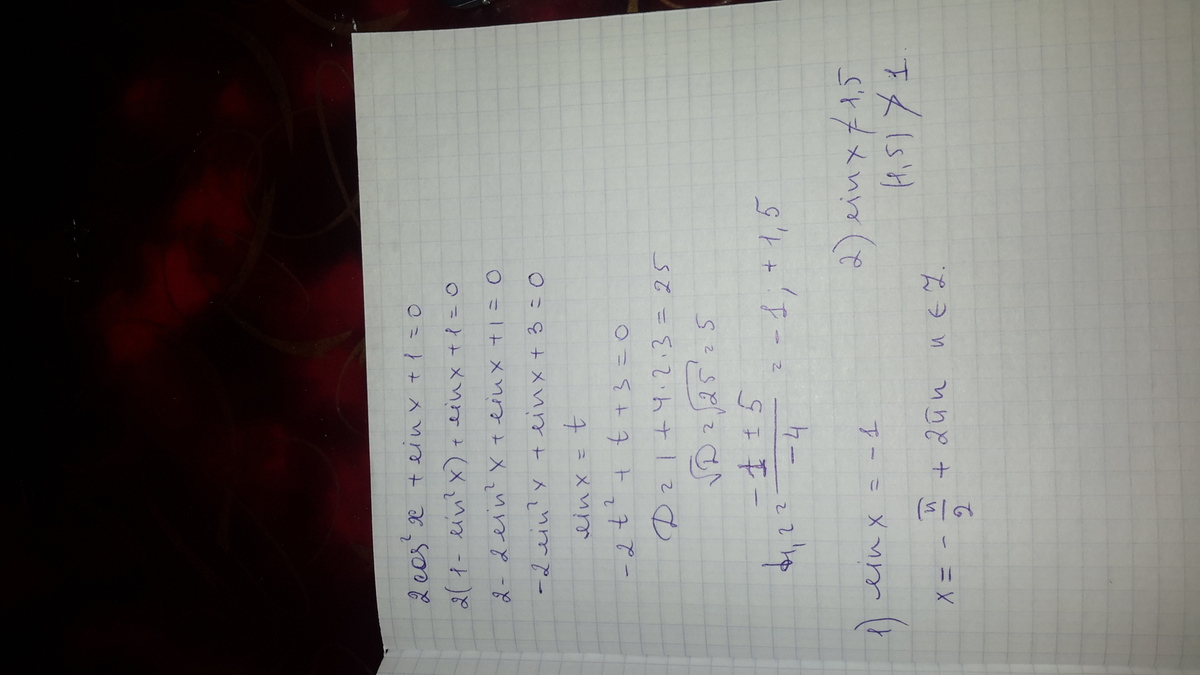 2cos²x + sinx + 1 = 0
2(1 - sin²x) + sinx + 1 = 0
2 - 2sin²x + sinx + 1 = 0
-2sin²x + sinx + 3 = 0
sinx = t
-2t² + t + 3 = 0
D = 1 + 4·2·3 = 25
√D = √25 = 5
t₁,₂ = (-1 ± 5)/(-4) = -1; +1,5
1) sinx = -1
x = -π/2 + 2πn n ∈ Z.
2) sinx ≠ 1,5
|1,5| > 1.